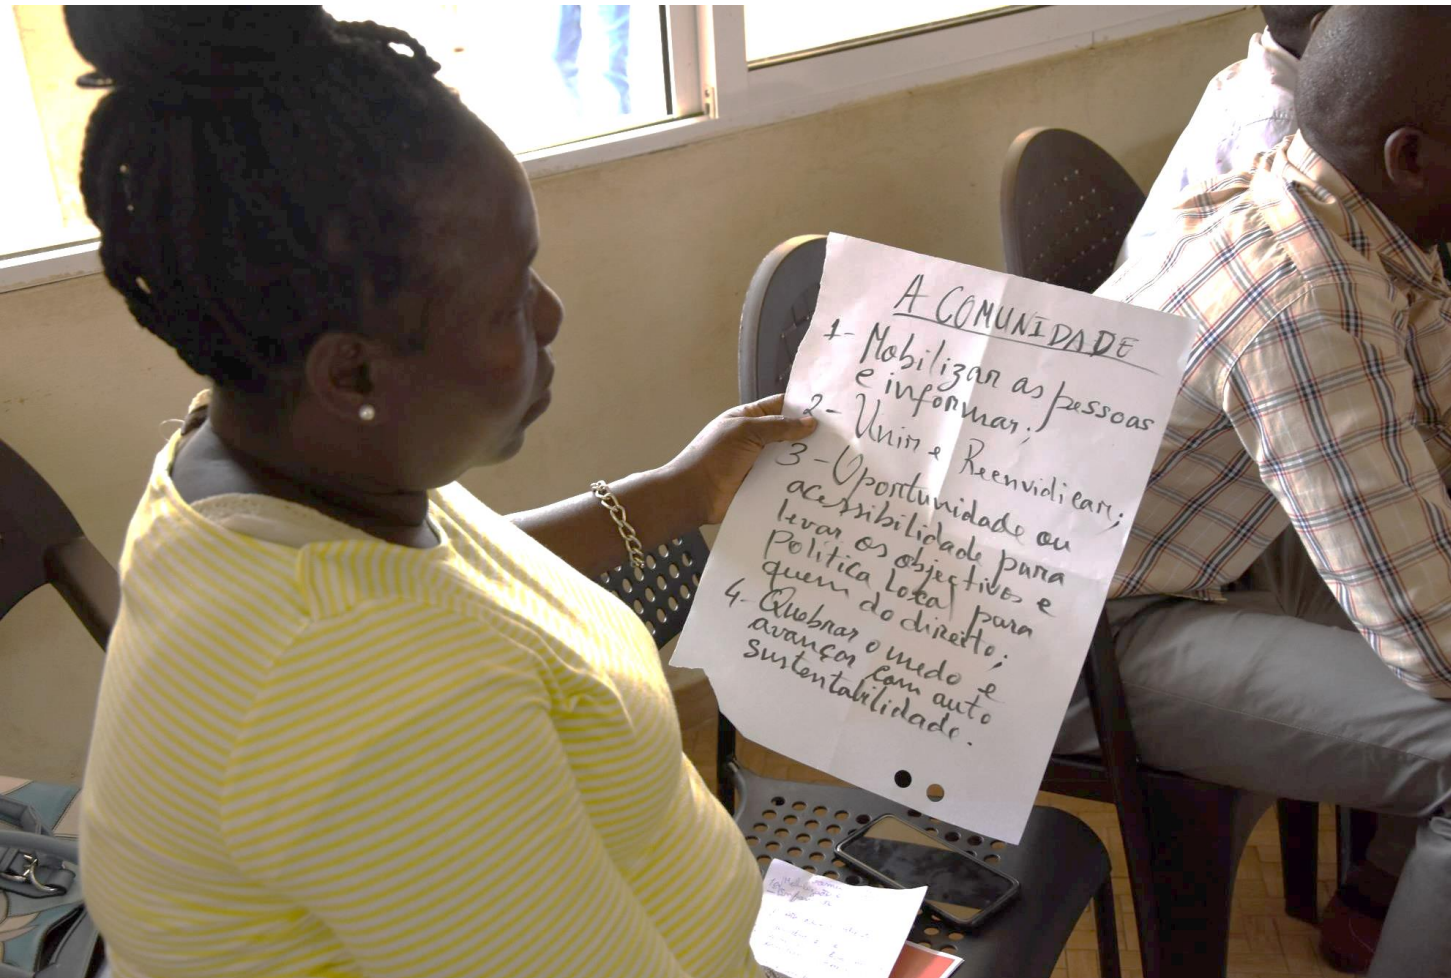 A COMUNIDADE
1- Mobilizar as pessoas
e informar;
2- Unir e Reenvidicar;
3- Oportunidade ou
acessibilidade para
levar os objectivos e
Política Local para
quem do direito;
4- Quebrar o medo e
avançar com auto
sustentabilidade.